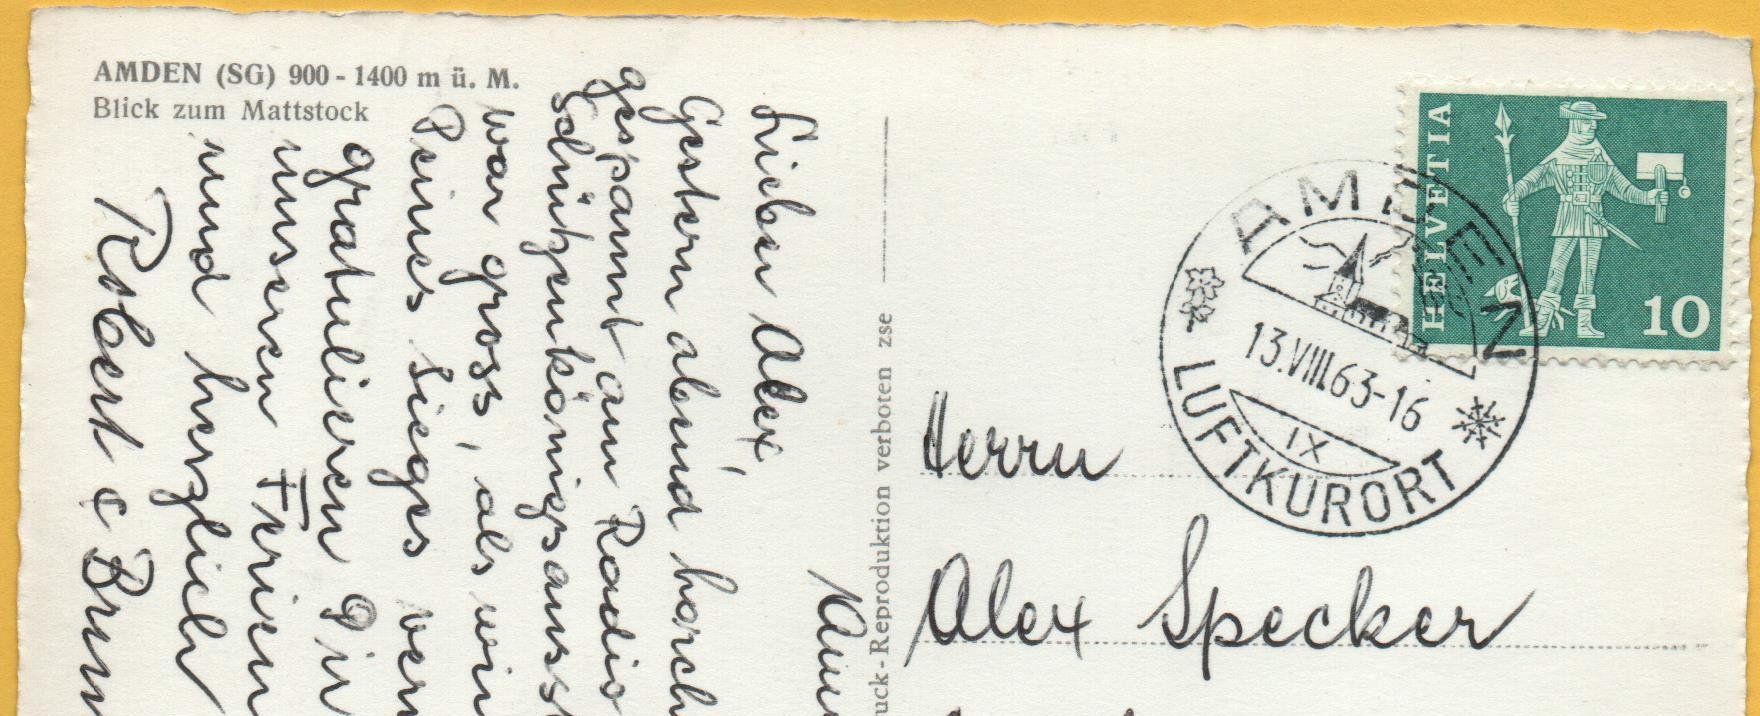 AMDEN (SG) 900 - 1400 m ü. M.
Blick zum Mattstock
Lieber Alex,
Gestern abend horch
gespannt am Radio
Schützenkönigsausst
war gross, als wir
Deines Sieges ver
gratulieren Dir
unseren Ferien
und herzlich
Robert & Brun
uck-Reproduktion verboten zse
HELVETIA
10
AMDEN
13.VIII.63-16
IX
LUFTKURORT
Herrn
Alex Specker